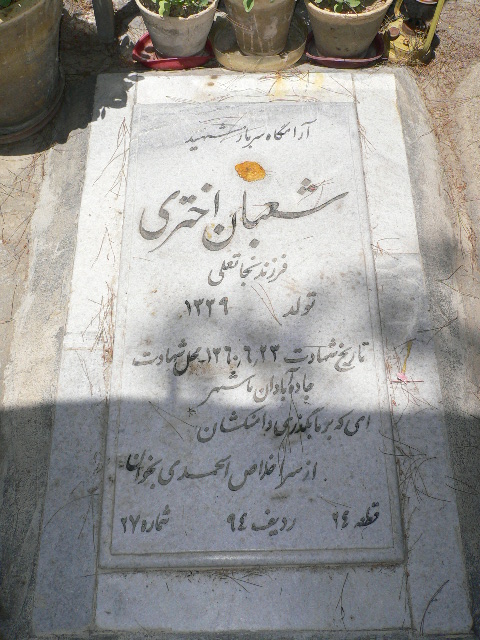 آرامگاه سرباز شهید
شعبان اختری
فرزند نجاتعلی
تولد ۱۳۳۹
تاریخ شهادت ۱۳۶۰.۶.۲۳ محل شهادت
جاده آبادان ماهشهر
ای که بر ما بگذری دامنکشان
از سر اخلاص الحمدی بخوان
قطعه ۲٤ ردیف ۹٤ شماره ۲۷